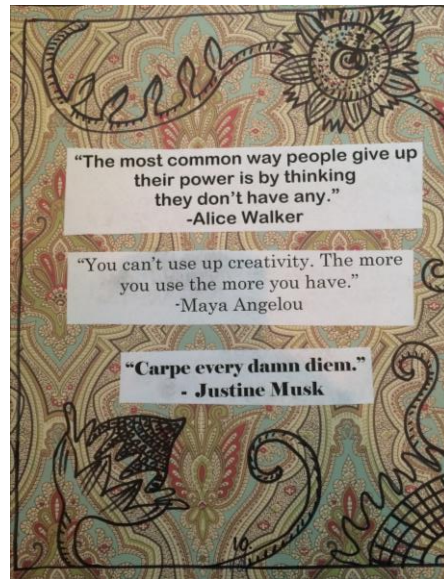 “The most common way people give up
their power is by thinking
they don’t have any.”
-Alice Walker
“You can’t use up creativity. The more
you use the more you have.”
-Maya Angelou
“Carpe every damn diem.”
- Justine Musk